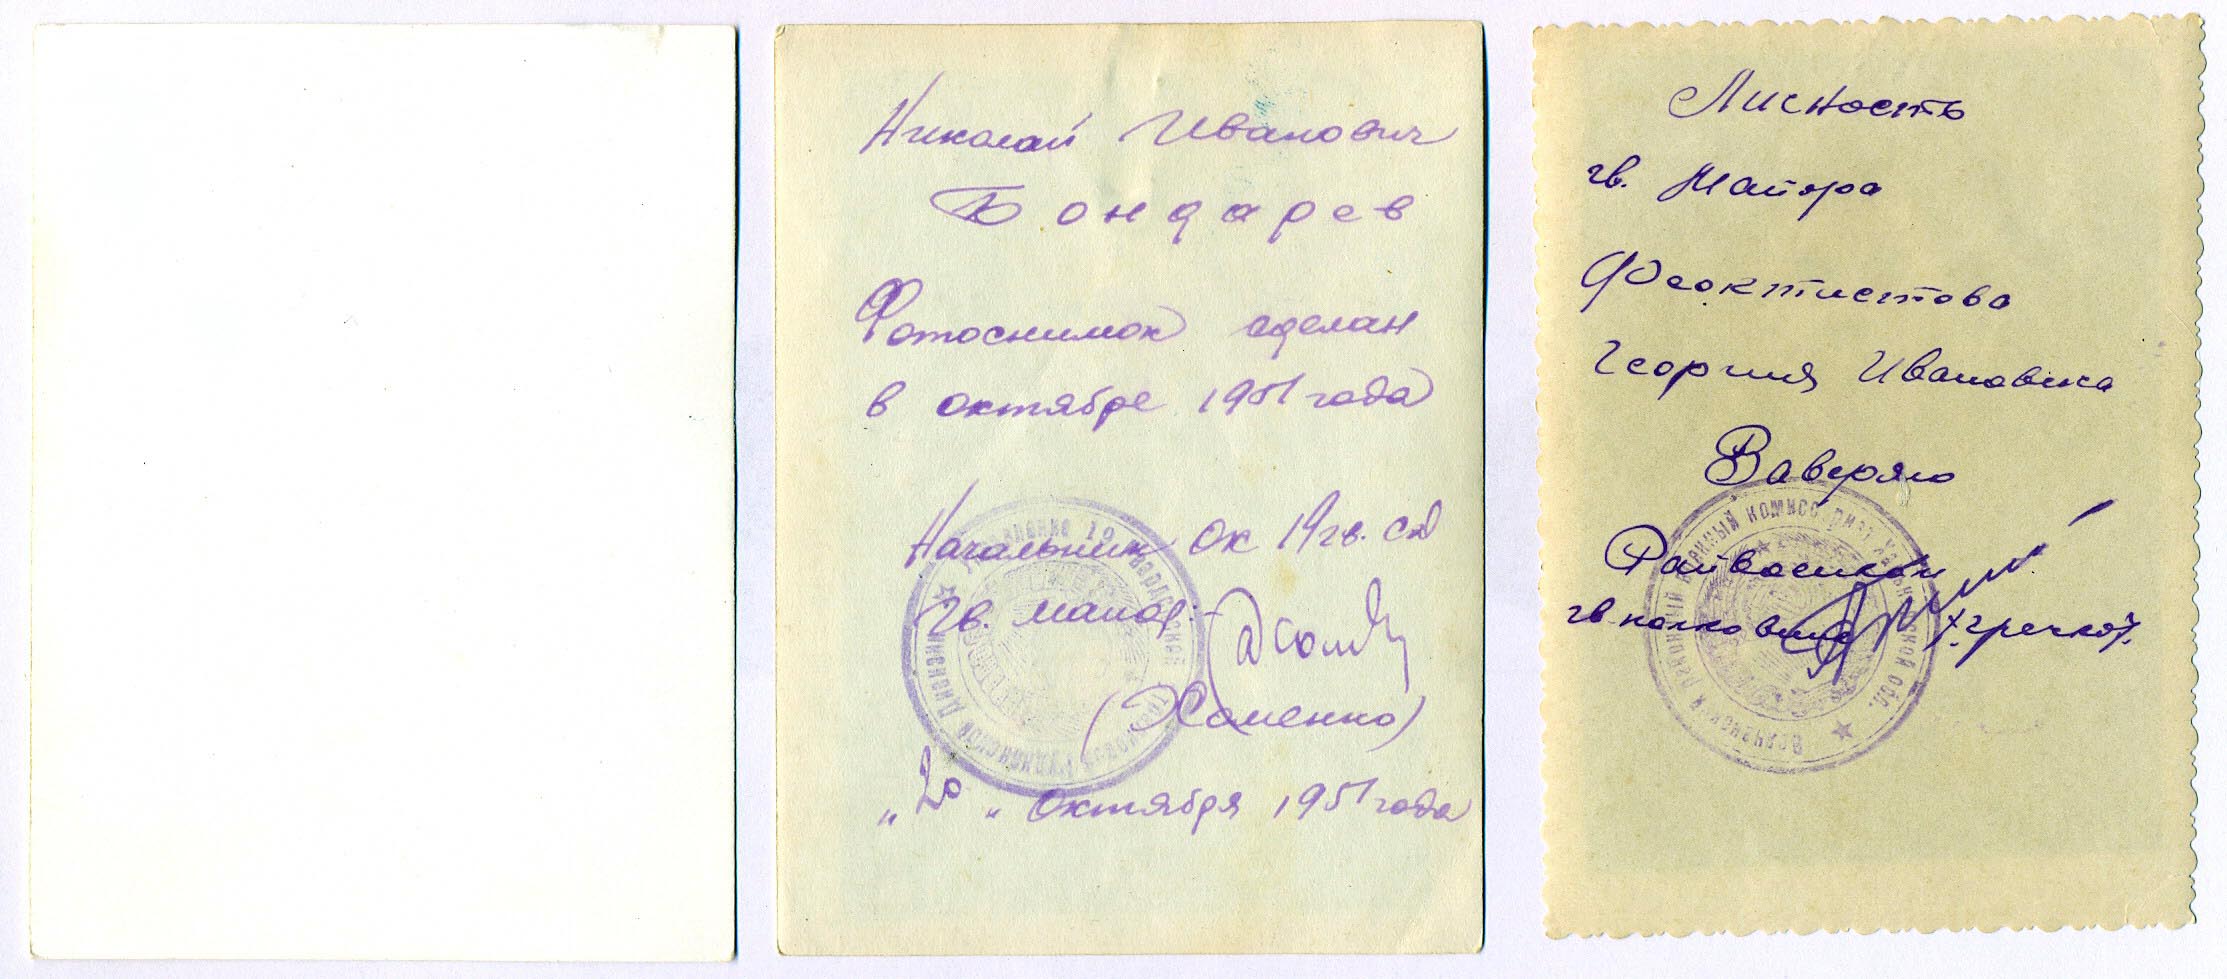 Николай Иванович
Бондарев
Фотоснимок сделан
в октябре 1951 года
Начальник ОК 19 гв. сд
гв. майор
"20" октября 1951 года
Личность
гв. Майора
Феоктистова
Георгия Ивановича
Заверяю
Райвоенком
гв. полковник /Гречко/.